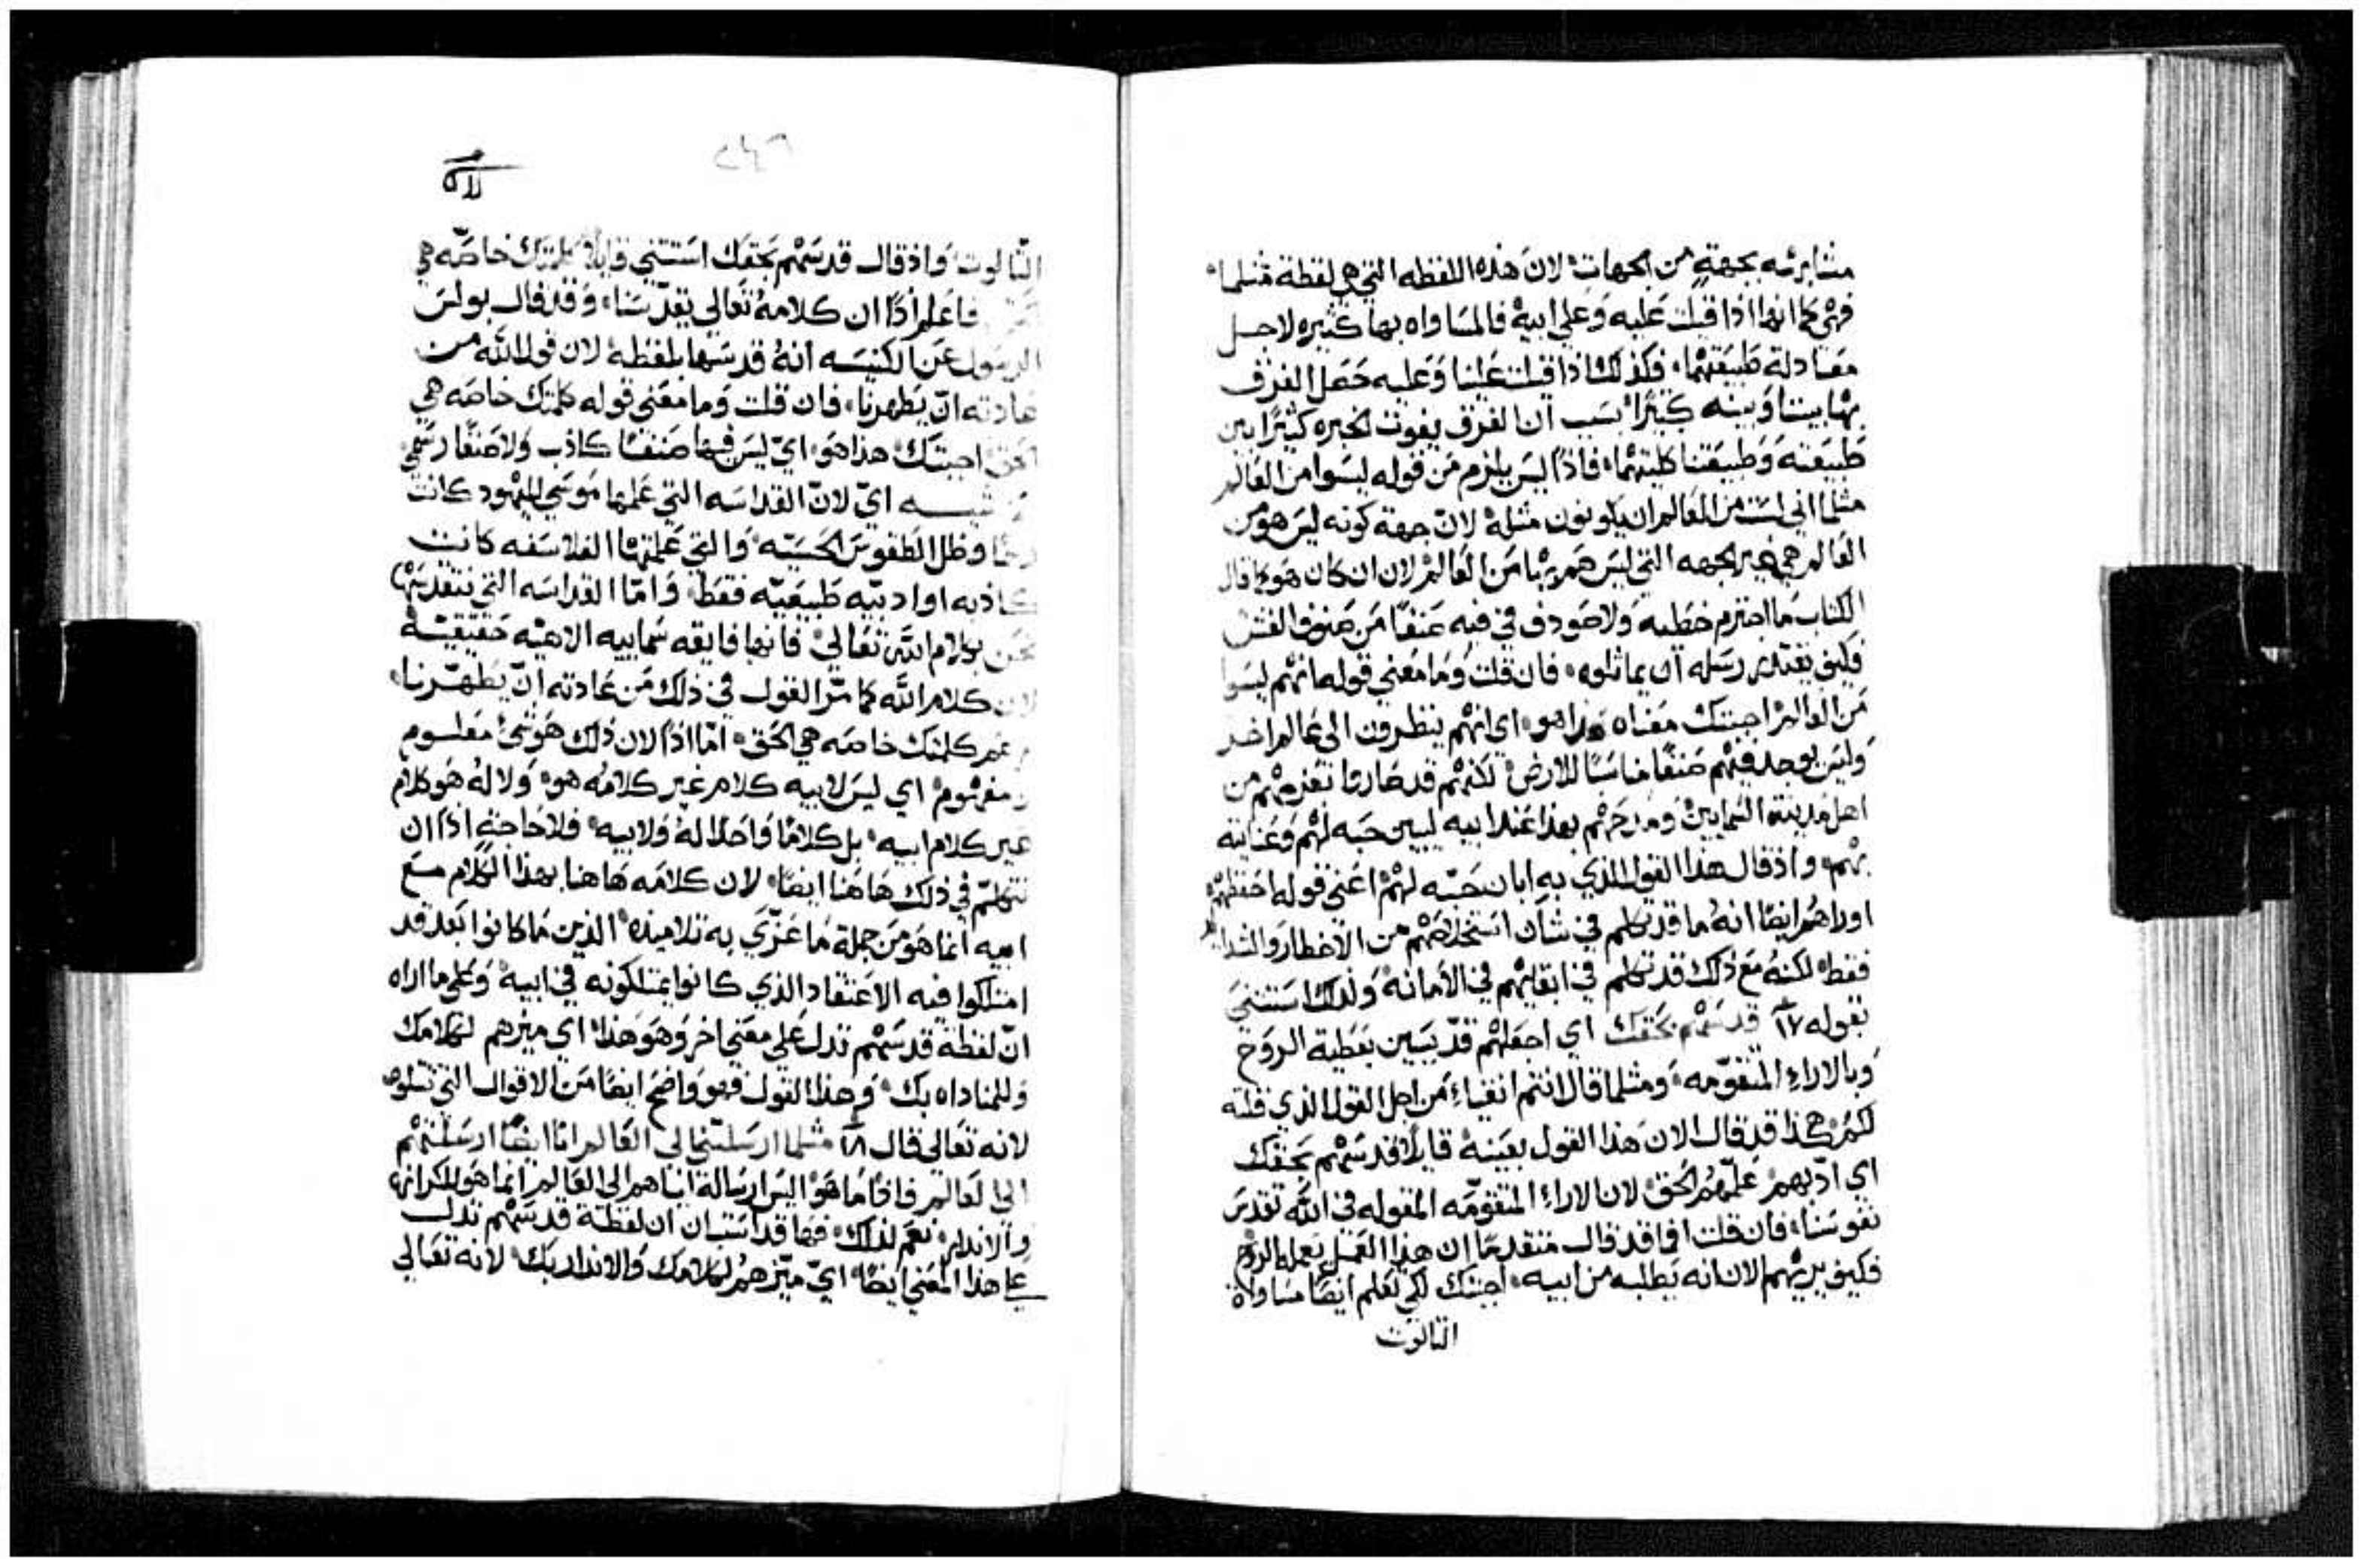 مشابهه بجهةٍ من الجهات لان هذه اللفظه التي هي لفظة مثلما
فهي كما انها اذا قيلت عليه وعلي ابيه فالمساواه بها كثيره لاجل
معادلة طبيعتهما فكذلك اذا قيلت علينا وعليه حصل الفرق
بها بيننا وبينه كثيرًا بسبب ان الفرق يفوت الخبره كثيرًا بين
طبيعته وطبيعتنا كليتهما فاذًا ليس يلزم من قوله ليسوا من العالم
مثلما اني لست من العالم ان يكونون مثله لان جهة كونه ليس هو من
العالم هي غير الجهه التي ليس هم بها من العالم لان ان كان هو كما قال
الكتاب ما اجترم خطيه ولا صودف في فيه صنفًا من صنوف الغش
فكيف يقتدر رسله ان يماثلوه فان قلت وما معني قوله انهم ليسوا
من العالم اجبتك معناه هذا هو اي انهم ينظرون الي عالم اخر
وليس يوجد فيهم صنفًا مناسبًا للارض لكنهم قد صاروا نعزهم من
اهل مدينة السمايين ومدحهم بهذا عند ابيه ليبين حبه لهم وعنايته
بهم واذ قال هذا القول الذي به ابان حبه لهم اعني قوله احفظهم
اوراهم ايضًا انه ما قد تكلم في شان استخلاصهم من الاخطار والشدايد
فقط لكنه مع ذلك قد تكلم في ابقايهم في الامانه ولذلك استثني
بقوله ١٧ قدسهم بحقك اي اجعلهم قديسين بعطية الروح
وبالاراء المتقومه ومثلما قال انتم انقياء من اجل القول الذي قلته
لكم هكذا قد قال الان هذا القول بعينه قايلًا قدسهم بحقك
اي ادبهم علمهم الحق لان الاراء المتقومه المقوله في الله تقدس
نفوسنا فان قلت افما قد قال متقدمًا ان هذا العمل يعمله الروح
فكيف يريهم الان انه يطلبه من ابيه اجبتك لكي تعلم ايضًا مساواة
الثالوث
٢٤٦
الثالوث واذ قال قدسهم بحقك استثني قايلًا كلمتك خاصه هي
فاعلم اذًا ان كلامه تعالي يقدسنا وقد قال بولس
الرسول عن الكنيسه انه قدسها بلفظه لان قول الله من
عادته ان يطهرنا فان قلت وما معني قوله كلمتك خاصه هي
الحق اجبتك هذا هو اي ليس فيها صنفًا كاذب ولا صنفًا رسمي
اي لان القداسه التي علمها موسي لليهود كانت
وظل الطقوس الحسيه والتي علمتها الفلاسفه كانت
كاذبه او ادبيه طبيعيه فقط واما القداسه التي نتقدسها
نحن بكلام الله تعالي فانها فايقه سماييه الاهيه حقيقيه
لان كلام الله كما مر القول في ذلك من عادته ان يطهرنا
كلمتك خاصه هي الحق اما اذًا لان ذلك هو شيء معلوم
مفهوم اي ليس لابيه كلام غير كلامه هو ولا له هو كلام
غير كلام ابيه بل كلامًا واحدًا له ولابيه فلا حاجة اذًا ان
نتكلم في ذلك هاهنا ايضًا لان كلامه هاهنا بهذا الكلام مع
ابيه انما هو من جملة ما عزي به تلاميذه الذين ما كانوا بعد قد
امتلكوا فيه الاعتقاد الذي كانوا يمتلكونه في ابيه وعلي ما اراه
ان لفظة قدسهم تدل علي معني اخر وهو هذا اي ميزهم لكلامك
وللمناداه بك وهذا القول فهو واضح ايضًا من الاقوال التي تتلوه
لانه تعالي قال ١٨ مثلما ارسلتني الي العالم انا ايضًا ارسلتهم
الي العالم فاذًا ما هو اليس ارسالة اياهم الي العالم انما هو للكرازه
والانذار نعم لذلك فها قد استبان ان لفظة قدسهم تدل
علي هذا المعني ايضًا اي ميزهم لكلامك والانذار بك لانه تعالي